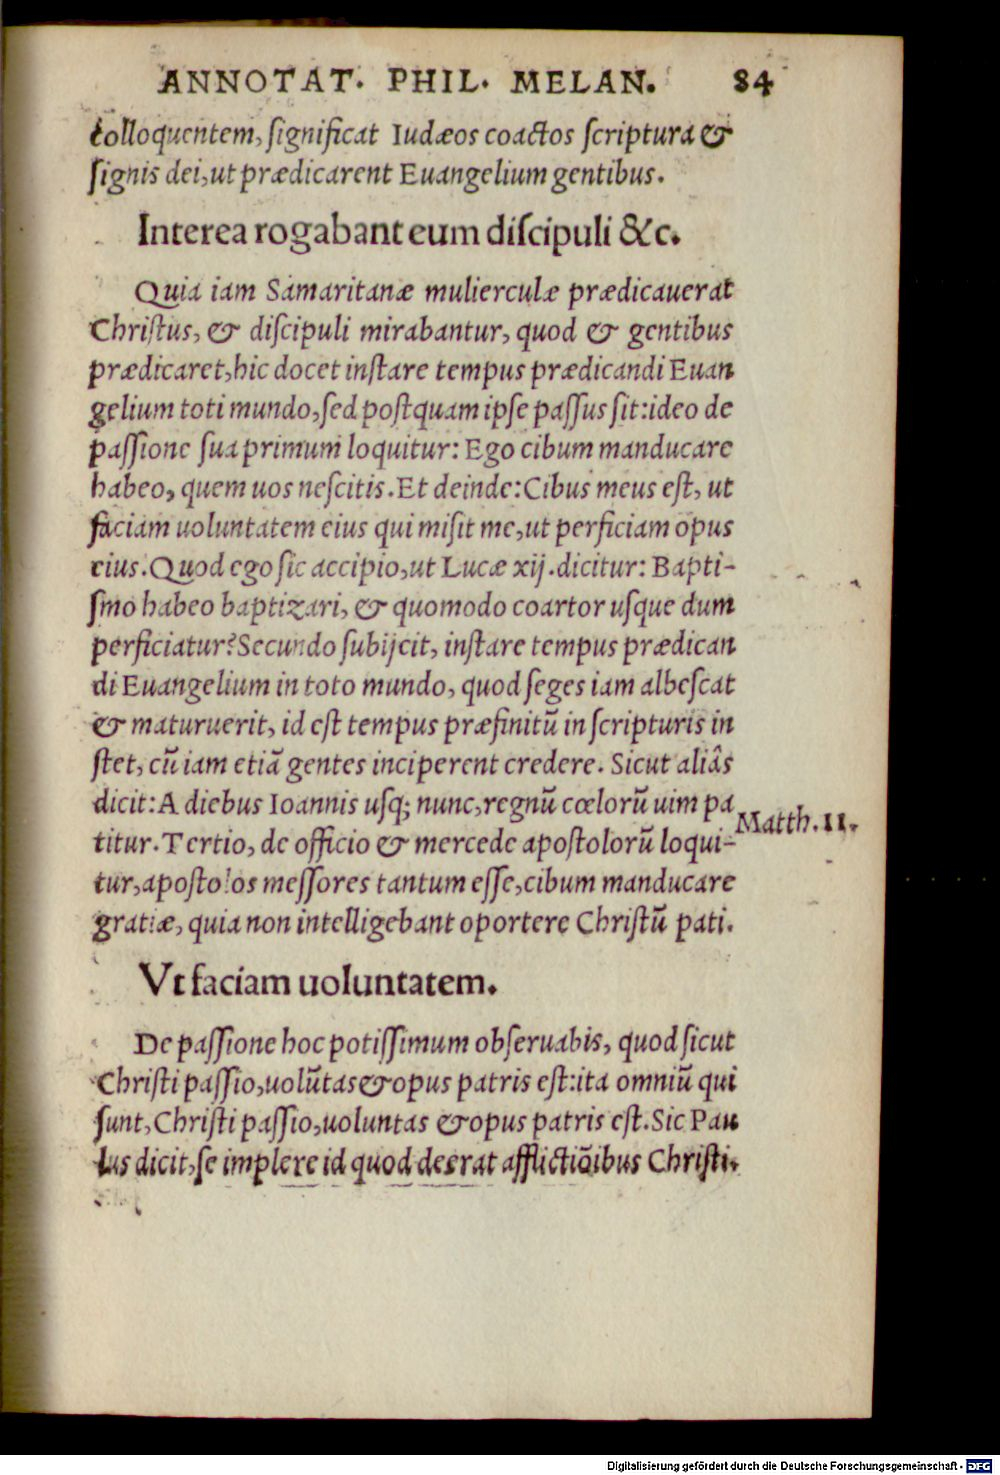 ANNOTAT. PHIL. MELAN. 84
colloquentem, significat Iudæos coactos scriptura &
signis dei, ut prædicarent Euangelium gentibus.
Interea rogabant eum discipuli &c.
Quia iam Samaritanæ mulierculæ prædicauerat
Christus, & discipuli mirabantur, quod & gentibus
prædicaret, hic docet instare tempus prædicandi Euan
gelium toti mundo, sed postquam ipse passus sit: ideo de
passione sua primum loquitur: Ego cibum manducare
habeo, quem uos nescitis. Et deinde: Cibus meus est, ut
faciam uoluntatem eius qui misit me, ut perficiam opus
eius. Quod ego sic accipio, ut Lucæ xij. dicitur: Bapti-
smo habeo baptizari, & quomodo coartor usque dum
perficiatur? Secundo subijcit, instare tempus prædican
di Euangelium in toto mundo, quod seges iam albescat
& maturuerit, id est tempus præfinitū in scripturis in
stet, cū iam etiā gentes inciperent credere. Sicut aliâs
dicit: A diebus Ioannis usq; nunc, regnū cœlorū uim pa
Matth. 11.
titur. Tertio, de officio & mercede apostolorū loqui-
tur, apostolos messores tantum esse, cibum manducare
gratiæ, quia non intelligebant oportere Christū pati.
Vt faciam uoluntatem.
De passione hoc potissimum obseruabis, quod sicut
Christi passio, uolūtas & opus patris est: ita omniū qui
sunt, Christi passio, uoluntas & opus patris est. Sic Pau
lus dicit, se implere id quod deerat afflictiōibus Christi.
Digitalisierung gefördert durch die Deutsche Forschungsgemeinschaft - DFG